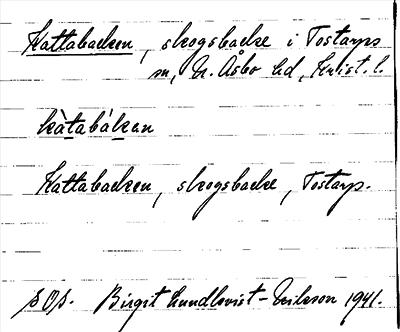 Kattabacken, skogsbacke i Tostarps
sn, N. Åsbo hd, Krist. l.
kàtabákan
Kattabacken, skogsbacke, Tostarp.
Birgit Lundkvist-Erikson 1941.